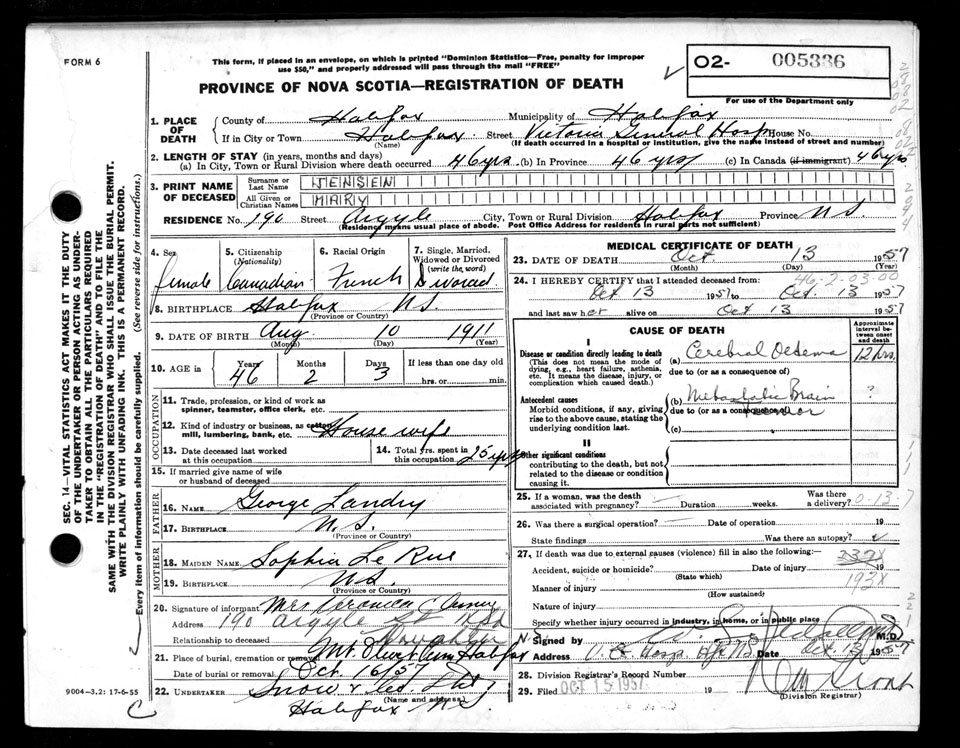 FORM 6
This form, if placed in an envelope, on which is printed "Dominion Statistics—Free, penalty for improper
use $50," and properly addressed will pass through the mail "FREE"
02- 005336
For use of the Department only
PROVINCE OF NOVA SCOTIA—REGISTRATION OF DEATH
1. PLACE OF DEATH
County of Halifax Municipality of Halifax
If in City or Town Halifax Street Victoria General Hosp House No.
(Name) (If death occurred in a hospital or institution, give the name instead of street and number)
2. LENGTH OF STAY (in years, months and days)
(a) In City, Town or Rural Division where death occurred 46 yrs (b) In Province 46 yrs (c) In Canada (if immigrant) 46 yrs
3. PRINT NAME OF DECEASED
Surname or Last Name JENSEN
All Given or Christian Names MARY
RESIDENCE No. 190 Street Argyle City, Town or Rural Division Halifax Province N.S.
(Residence means usual place of abode. Post Office Address for residents in rural parts not sufficient)
4. Sex Female
5. Citizenship (Nationality) Canadian
6. Racial Origin French
7. Single, Married, Widowed or Divorced (write the word) Divorced
8. BIRTHPLACE Halifax N.S.
(Province or Country)
9. DATE OF BIRTH Aug. 10 1911
(Month) (Day) (Year)
10. AGE in Years 46 Months 2 Days 3 If less than one day old
hrs. or min.
OCCUPATION
11. Trade, profession, or kind of work as
spinner, teamster, office clerk, etc.
12. Kind of industry or business, as cotton
mill, lumbering, bank, etc. House wife
13. Date deceased last worked
at this occupation
14. Total yrs. spent in
this occupation 25 yrs
15. If married give name of wife
or husband of deceased
FATHER
16. NAME George Landry
17. BIRTHPLACE N.S.
(Province or Country)
MOTHER
18. MAIDEN NAME Sophia Le Rue
19. BIRTHPLACE N.S.
(Province or Country)
20. Signature of informant Mrs Veronica
Address 190 Argyle St
Relationship to deceased Daughter
21. Place of burial, cremation or removal Mt. Olivet Cem Halifax
Date of burial or removal Oct. 16/57
22. UNDERTAKER Snow
(Name and address)
Halifax N.S.
MEDICAL CERTIFICATE OF DEATH
23. DATE OF DEATH Oct 13 1957
(Month) (Day) (Year)
46-2-03-00
24. I HEREBY CERTIFY that I attended deceased from:
Oct 13 1957 to Oct. 13 1957
and last saw her alive on Oct 13 1957
CAUSE OF DEATH
Approximate interval between onset and death
I
Disease or condition directly leading to death
(This does not mean the mode of
dying, e.g., heart failure, asthenia,
etc. It means the disease, injury, or
complication which caused death.)
(a) Cerebral Oedema 12 hrs.
due to (or as a consequence of)
Antecedent causes
Morbid conditions, if any, giving
rise to the above cause, stating the
underlying condition last.
(b) Metastatic Brain ?
due to (or as a consequence of)
(c)
II
Other significant conditions
contributing to the death, but not
related to the disease or condition
causing it.
25. If a woman, was the death
associated with pregnancy? — Duration weeks. Was there
a delivery? 0-13-7
26. Was there a surgical operation? — Date of operation 19
State findings Was there an autopsy?
27. If death was due to external causes (violence) fill in also the following:—
Accident, suicide or homicide? Date of injury 19
(State which)
193X
Manner of injury
(How sustained)
Nature of injury
Specify whether injury occurred in industry, in home, or in public place
Signed by M.D.
Address V. G. Hosp. Hfx N.S. Date Oct. 13 1957
28. Division Registrar's Record Number
29. Filed OCT 15 1957 19
(Division Registrar)
9004-3.2: 17-6-55
SEC. 14—VITAL STATISTICS ACT MAKES IT THE DUTY
OF THE UNDERTAKER OR PERSON ACTING AS UNDER-
TAKER TO OBTAIN ALL THE PARTICULARS REQUIRED
IN THE "REGISTRATION OF DEATH" AND TO FILE THE
SAME WITH THE DIVISION REGISTRAR WHO SHALL ISSUE THE BURIAL PERMIT.
WRITE PLAINLY WITH UNFADING INK. THIS IS A PERMANENT RECORD.
Every item of information should be carefully supplied. (See reverse side for instructions.)